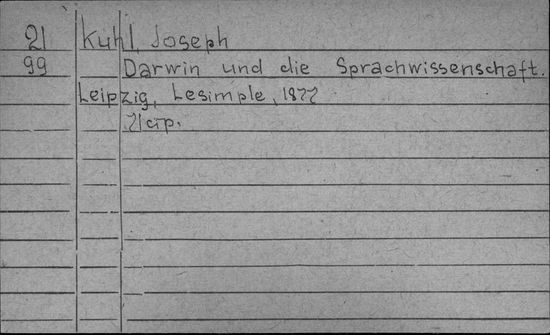 21 Kuhl, Joseph
99 Darwin und die Sprachwissenschaft.
Leipzig, Lesimple, 1877
71 стр.